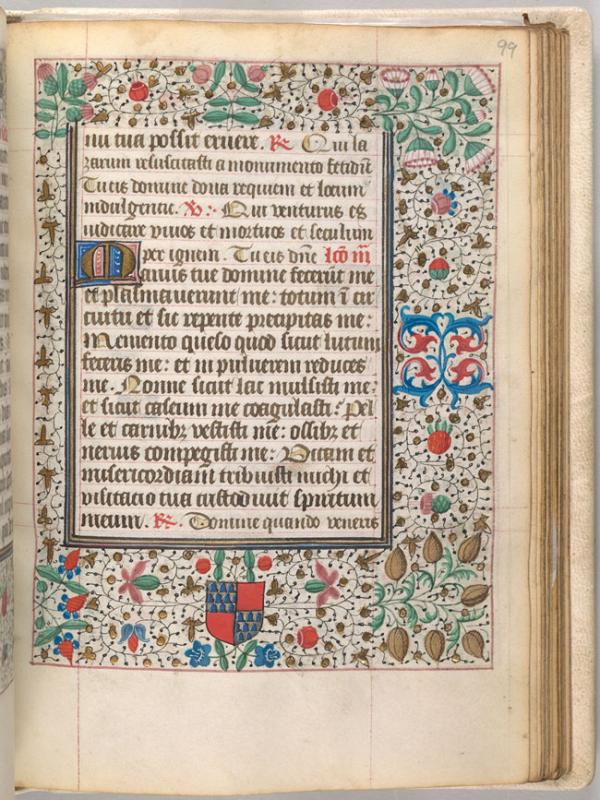 99
nu tua possit eruere. R. Qui la
zarum resuscitasti a monumento fetidū
Tu eis domine dona requiem et locum
indulgentie. V. Qui venturus es
iudicare viuos et mortuos et seculum
per ignem. Tu eis dñe lcō iii
Manus tue domine fecerūt me
et plasmauerunt me: totum ī cir
cuitu et sic repente precipitas me:
Memento queso quod sicut lutum
feceris me: et in puluerem reduces
me. Nonne sicut lac mulsisti me:
et sicut caseum me coagulasti: Pel
le et carnibꝫ vestisti me: ossibꝫ et
neruis compegisti me: Vitam et
misericordiam tribuisti michi et
visitacio tua custodiuit spiritum
meum. R. Domine quando veneris